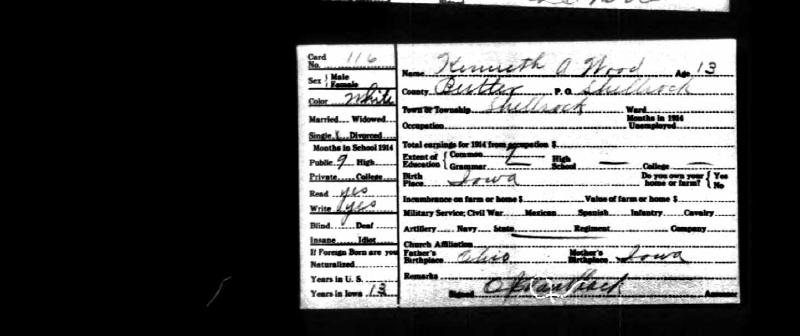 Card No. 116
Sex { Male Female
Color White
Married Widowed
Single Divorced
Months in School 1914
Public 9 High
Private College
Read yes
Write yes
Blind Deaf
Insane Idiot
If Foreign Born are you
Naturalized
Years in U. S.
Years in Iowa 13
Name Kenneth A Wood Age 13
County Butler P. O. Shellrock
Town or Township Shellrock Ward
Occupation Months in 1914 Unemployed
Total earnings for 1914 from occupation $
Extent of Education { Common 9 Grammar High School — College —
Birth Place Iowa Do you own your home or farm? { Yes No
Incumbrance on farm or home $ Value of farm or home $
Military Service: Civil War Mexican Spanish Infantry Cavalry
Artillery Navy State Regiment Company
Church Affiliation
Father's Birthplace Ohio Mother's Birthplace Iowa
Remarks
Signed Assessor